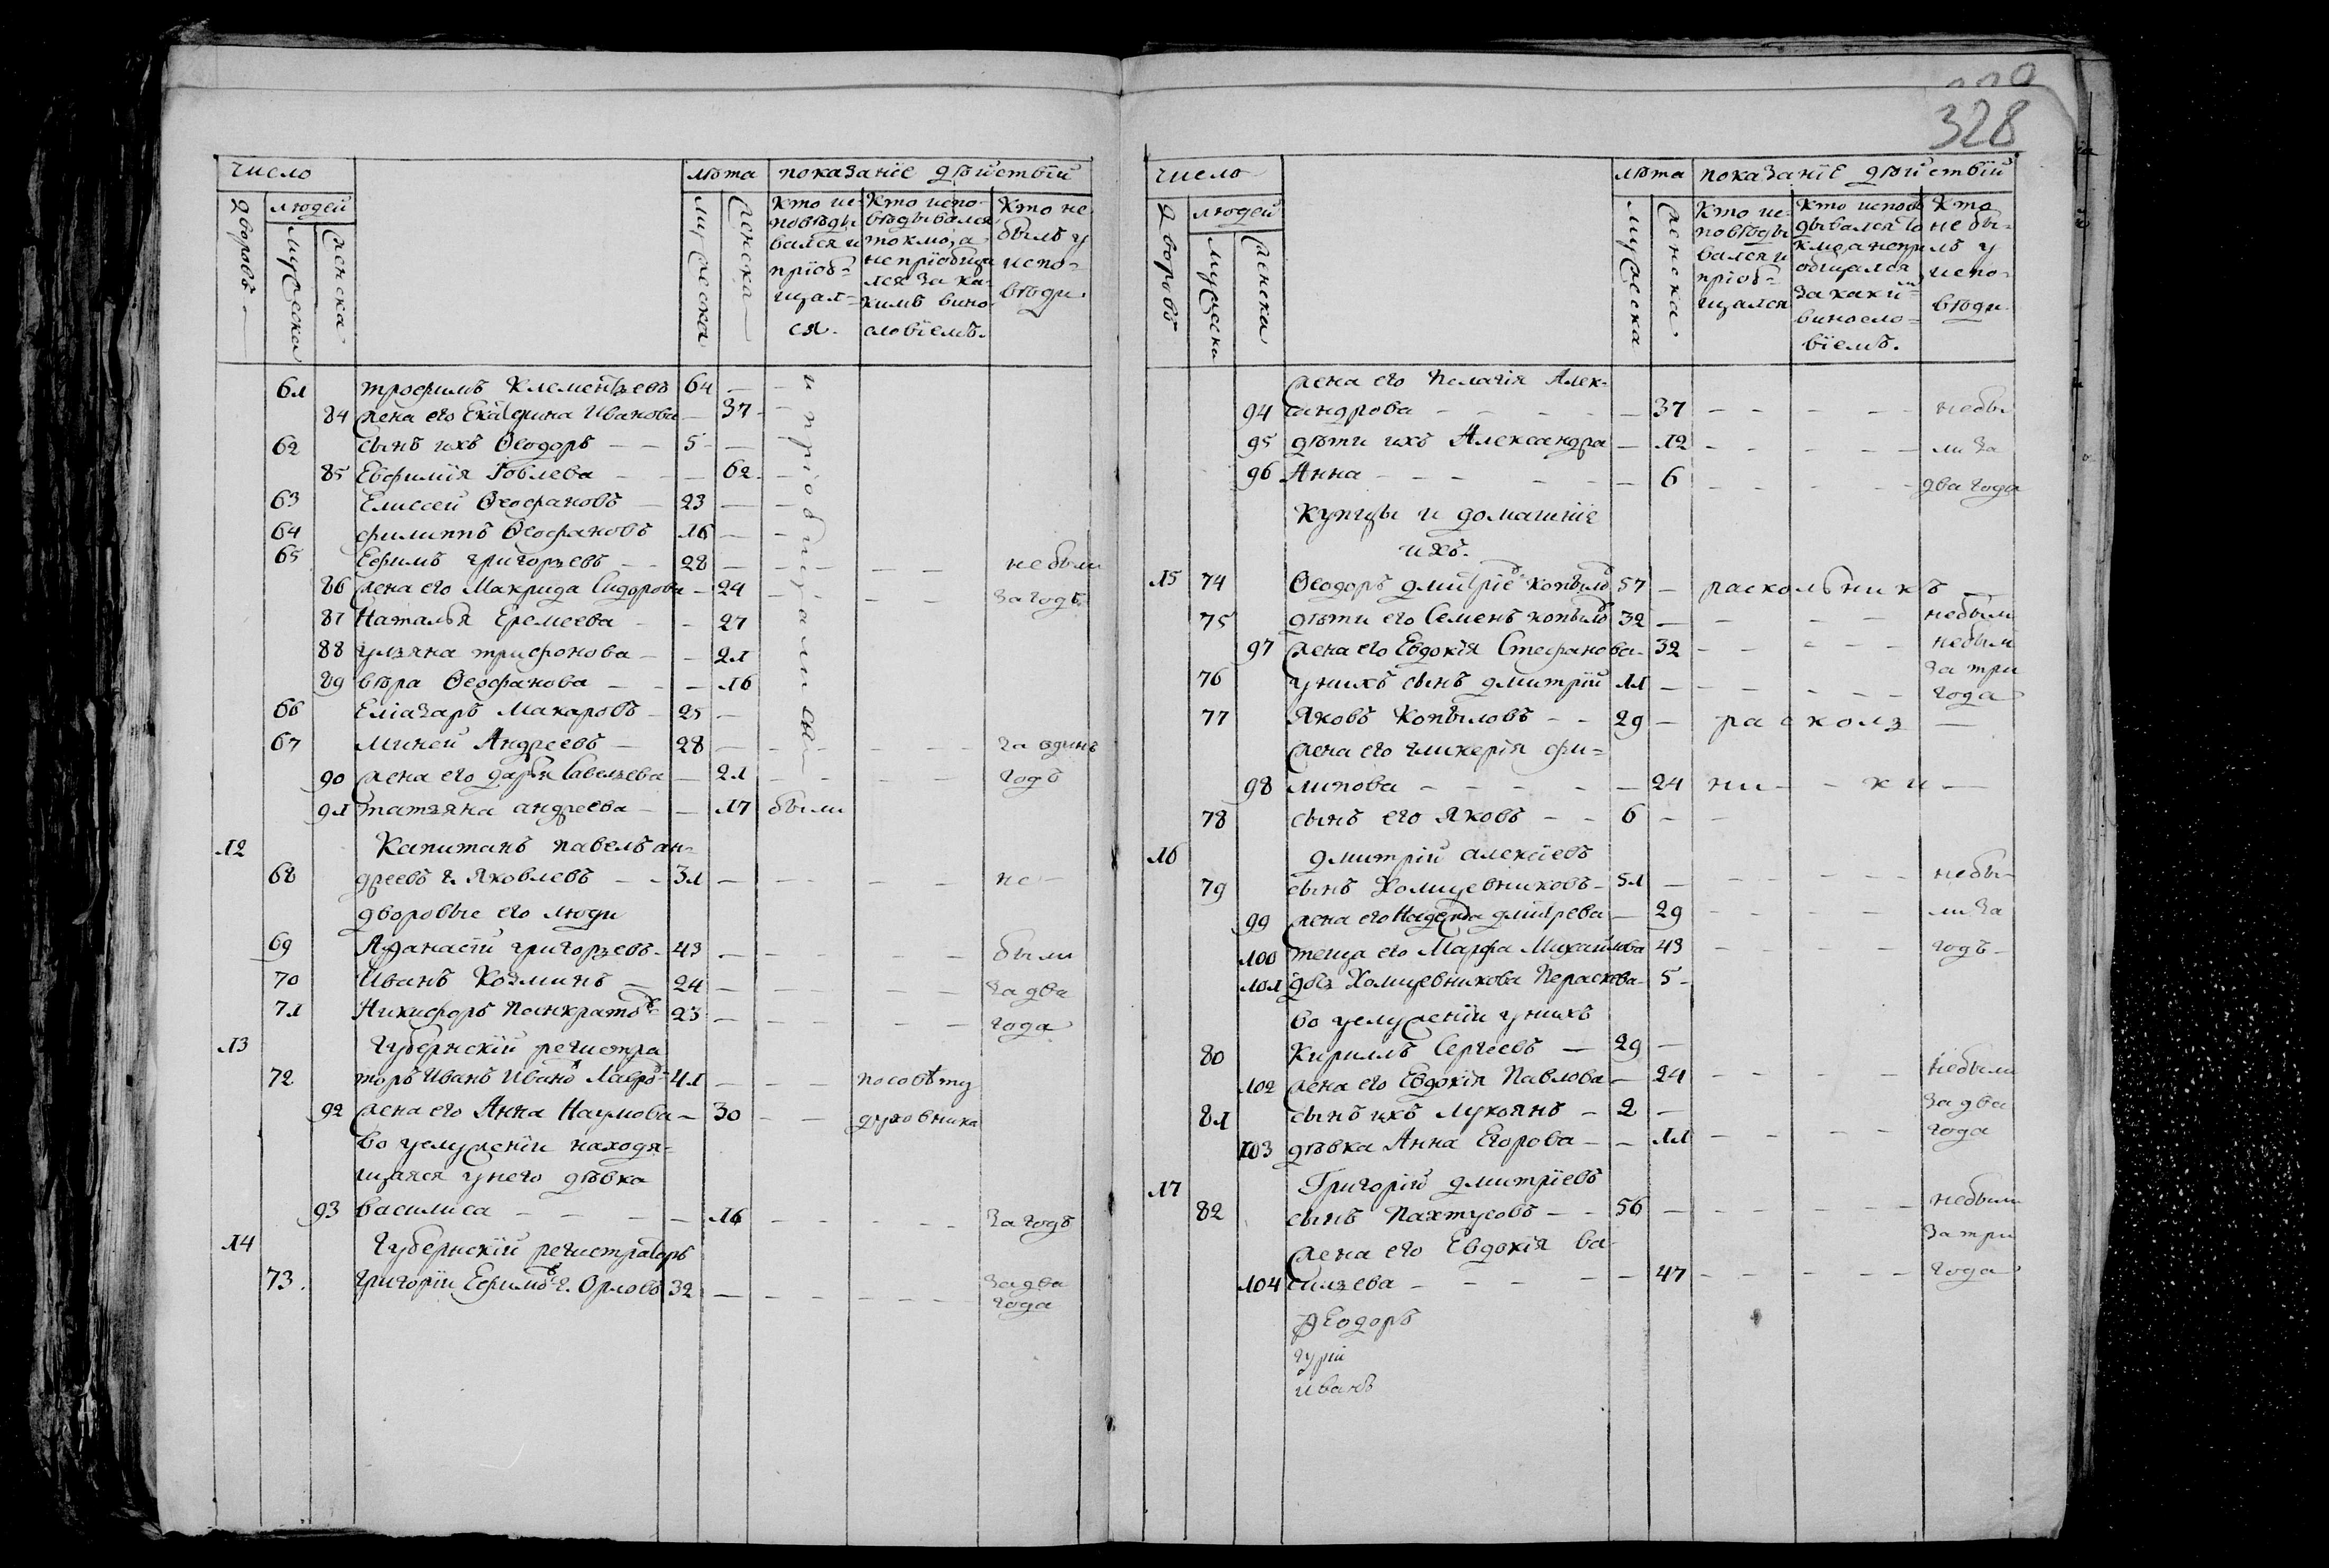 число лѣта показанїе дѣйствїй
дворовъ людей мужеска женска мужеска женска
Кто исповѣдывался и прїобщался.
Кто исповѣдывался токмо, а не прїобщался за какимъ винословїемъ.
Кто не былъ у исповѣди.
61 трофимъ Клементьевъ 64 — — и прїобщалися
84 жена его Екатерина Иванова — 37 —
62 сынъ ихъ Ѳеодоръ — — 5 —
85 Евфимїя Іовлева — — 62 —
63 Елиссей Ѳеофановъ — 23 — —
64 филиппъ Ѳеофановъ 16 — —
65 Ефимъ григорьевъ — 28 — — — — не были
86 жена его Макрида Сидорова — 24 — — — за годъ
87 Наталья Еремеева — — 27
88 ульяна трифонова — — 21
89 вѣра Ѳеофанова — — — 16
66 Елїазаръ Макаровъ — 25 —
67 Миней Андреевъ — 28 — — — — за одинъ
90 жена его дарья Савельева — 21 — — — — годъ
91 татьяна андреева — — 17 были
12 Капитанъ павелъ ан-
68 дреевъ г. Яковлевъ — — 31 — — — — не —
дворовые его люди
69 Афанасїй григорьевъ — 43 — — — — были
70 Иванъ Козминъ — 24 — — — — за два
71 Никифоръ Панкратовъ 23 — — — — года
13 Губернскїй регистра
72 торъ Иванъ Ивановъ Лавровъ 41 — — по совѣту
92 жена его Анна Наумова — 30 — — духовника
во услуженїи находя-
щаяся у него дѣвка
93 василиса — — — — 16 — — — — — за годъ
14 Губернскїй регистраторъ
73. григорїй Ефимовъ г. Орловъ 32 — — — — — — за два
года
328
число лѣта показанїе дѣйствїй
дворовъ людей мужеска женска мужеска женска
Кто исповѣдывался и прїобщался
Кто исповѣдывался токмо а не прїобщался за какимъ винословїемъ.
Кто не былъ у исповѣди.
жена его Пелагїя Алек-
94 сандрова — — — — — 37 — — — — — не бы-
95 дѣти ихъ Александра — 12 — — — — — ли за
96 Анна — — — — — — 6 — — — — — два года
Купцы и домашнїе
ихъ.
15 74 Ѳеодоръ дмитрїевъ копыловъ 57 — раскольникъ —
75 дѣти его Семенъ копыловъ 32 — — — — не были
97 жена его Евдокїя Стефанова — 32 — — — — — не были
76 у нихъ сынъ дмитрїй 11 — — — — — — за три
года
77 Яковъ Копыловъ — — 29 — расколь —
жена его гликерїя фи-
98 липова — — — — — 24 ни — — ки —
78 сынъ его Яковъ — — 6 — —
16 дмитрїй алексїевъ
79 сынъ Холщевниковъ — 51 — — — — — — не бы-
99 жена его Надежда дмитрева — 29 — — — — ли за
100 теща его Марфа Михайлова 43 — — — — годъ —
101 дочь Холщевникова Пераскева — 5 —
во услуженїи у нихъ
80 Кириллъ Сергеевъ — 29 —
102 жена его Евдокїя Павлова — 24 — — — — не были
81 сынъ ихъ Лукоянъ — 2 — за два
103 дѣвка Анна Егорова — — 11 — — — — года
17 Григорїй дмитрїевъ
82 сынъ Пахтусовъ — — 56 — — — — — — не были
жена его Евдокїя ва- за три
104 сильева — — — — — 47 — — — — — года
Ѳеодоръ
гурїй
иванъ